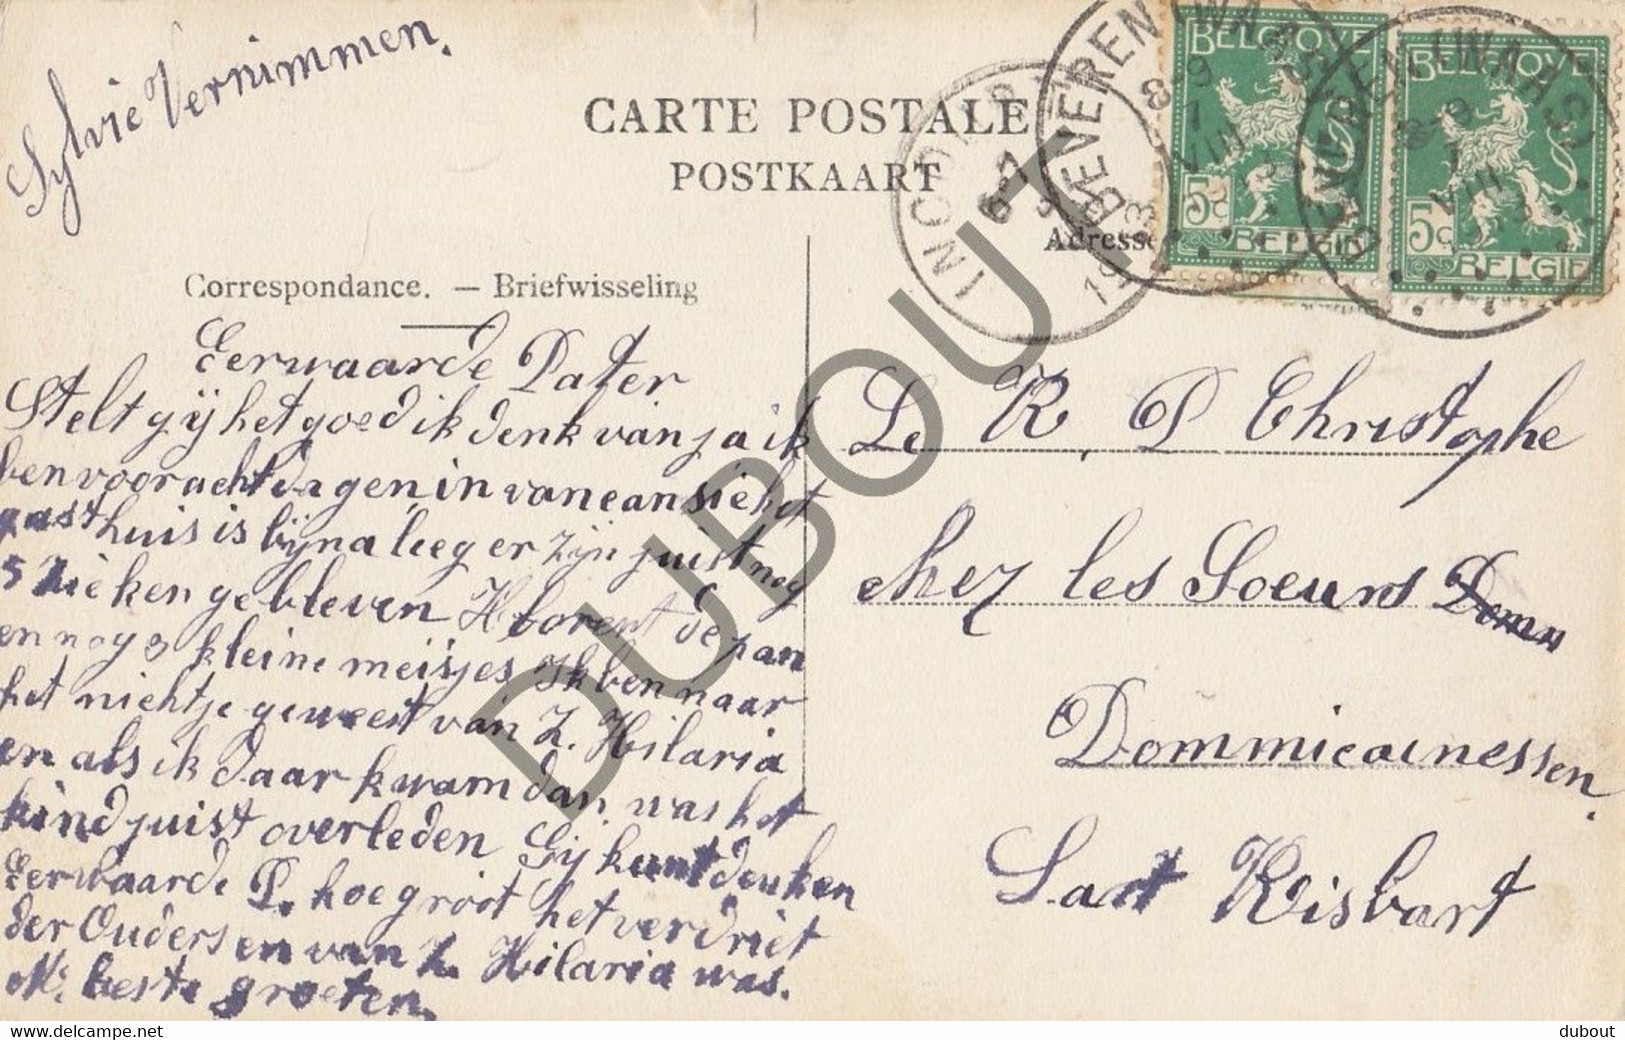 Sylvie Vernimmen.
CARTE POSTALE
POSTKAART
Adresse
Correspondance. — Briefwisseling
BELGIQUE
5c
BELGIE
BELGIQUE
5c
BELGIE
BEVEREN (WAAS)
8-9
7
VIII
BEVEREN (WAAS)
8-9
7
VIII
INCOURT
Eerwaarde Pater
Stelt gij het goed ik denk van ja ik
ben voor acht dagen in vancansie het
gasthuis is bijna leeg er zijn juist nog
5 zieken gebleven Hlorent de pan
en nog 3 kleine meisjes Ik ben naar
het nichtje geweest van Z. Hilaria
en als ik daar kwam dan was het
kind juist overleden Gij kunt denken
Eerwaarde P. hoe groot het verdriet
der Ouders en van Z. Hilaria was.
M. beste groeten
Le R. P Christophe
chez les Soeurs
Dommicainessen.
Sart Risbart
DUBOUT
dubout
www.delcampe.net